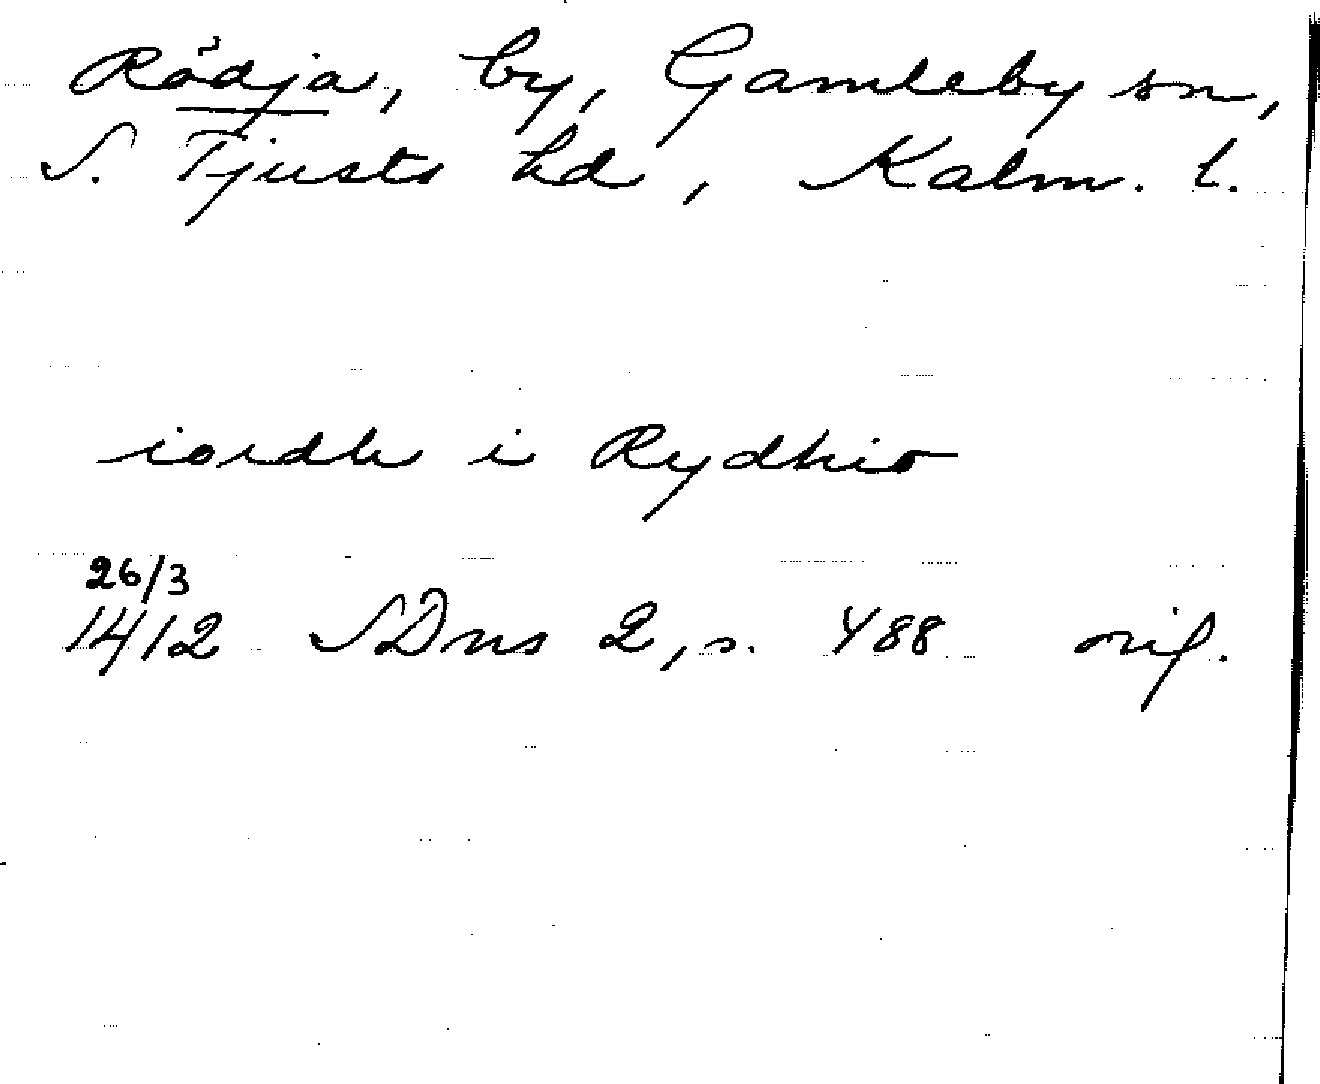 Rödja, by, Gamleby sn,
S. Tjusts hd, Kalm. l.
iordh i Rydhio
26/3
1412 SDns 2, s. 488 orig.